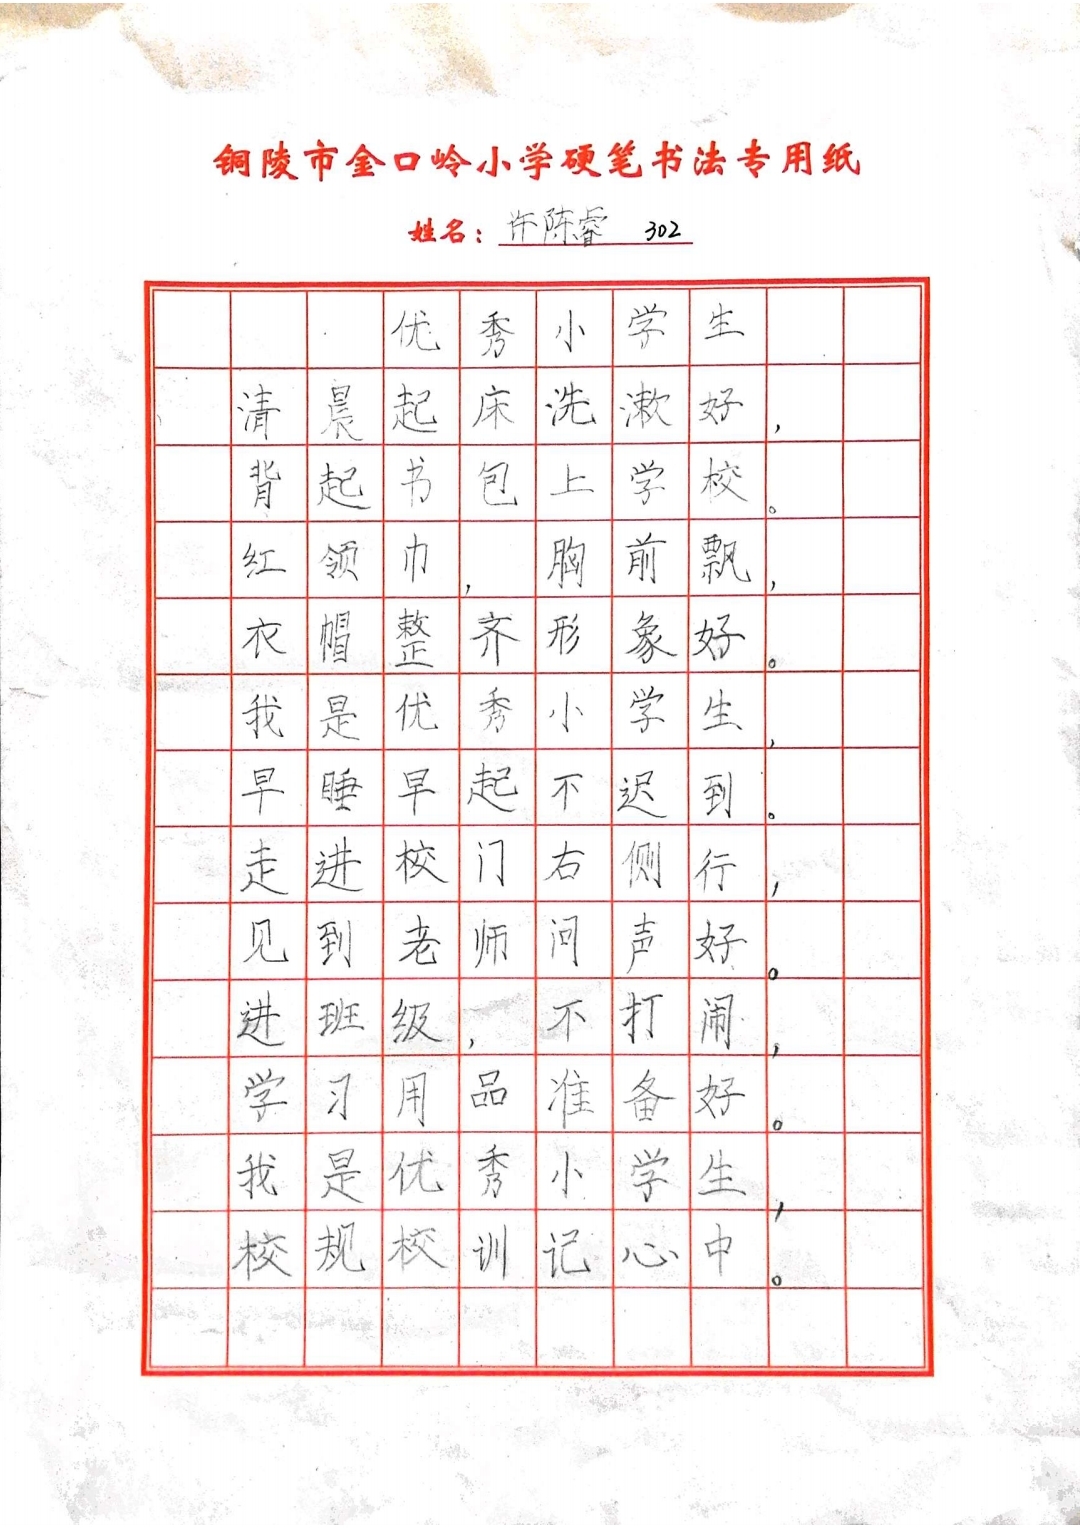 铜陵市金口岭小学硬笔书法专用纸
姓名：许陈睿 302
优秀小学生
清晨起床洗漱好，
背起书包上学校。
红领巾，胸前飘，
衣帽整齐形象好。
我是优秀小学生，
早睡早起不迟到。
走进校门右侧行，
见到老师问声好。
进班级，不打闹，
学习用品准备好。
我是优秀小学生，
校规校训记心中。